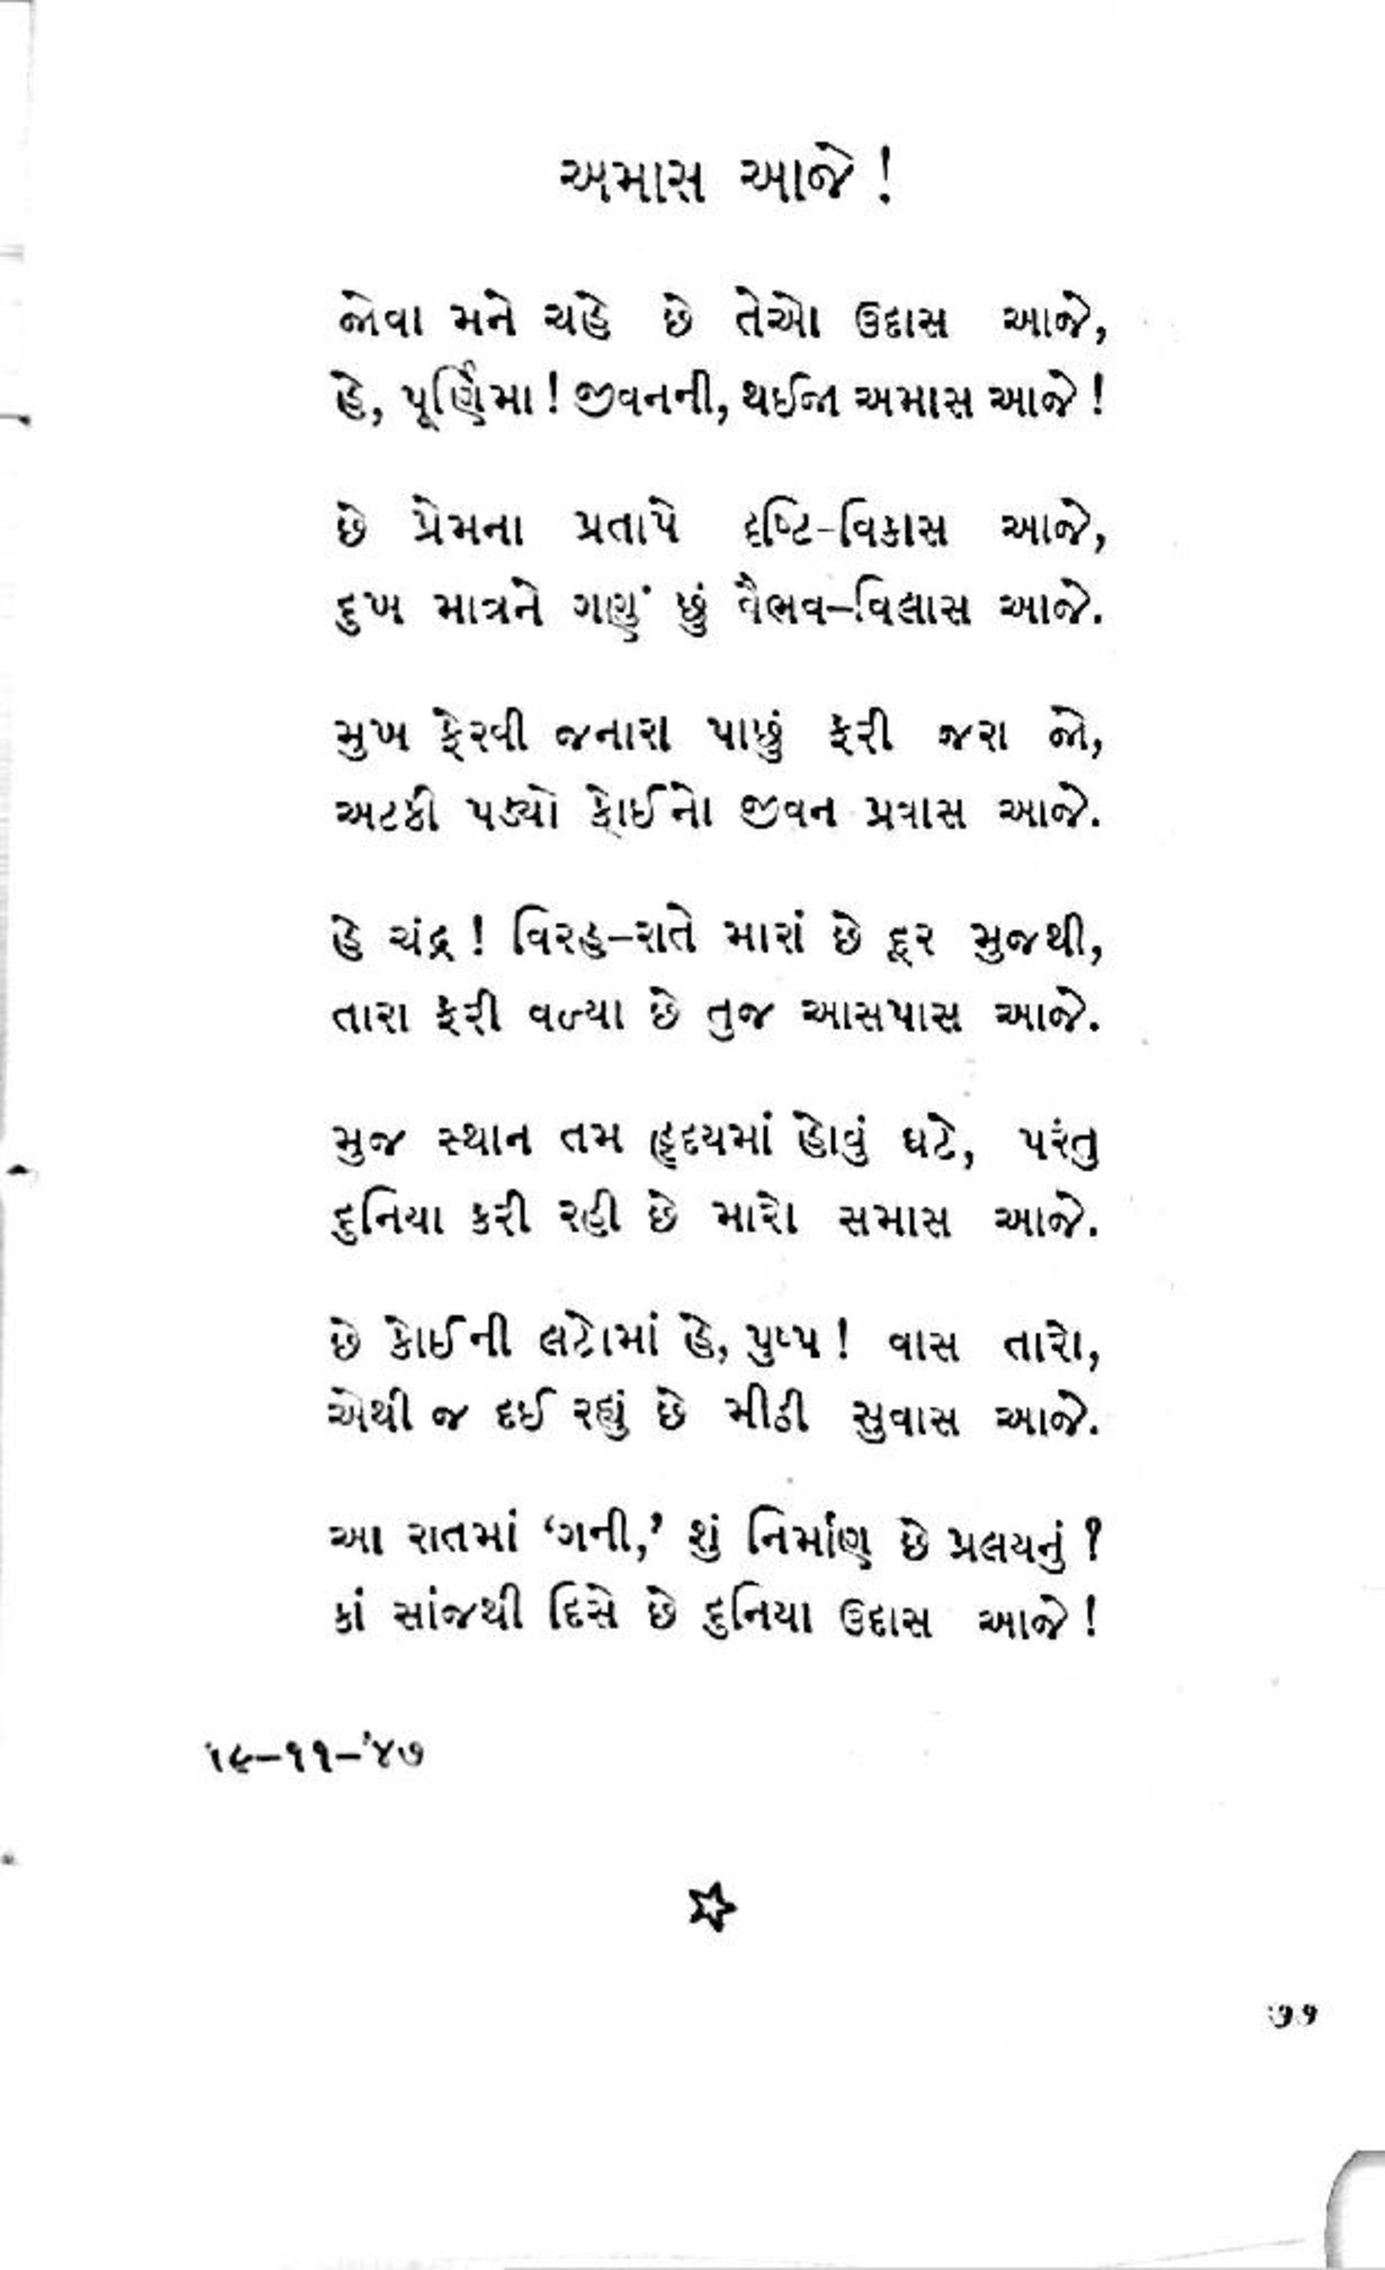 અમાસ આજે !
જોવા મને ચહે છે તેઓ ઉદાસ આજે,
હે, પૂર્ણિમા ! જીવનની, થઈજા અમાસ આજે !
છે પ્રેમના પ્રતાપે દૃષ્ટિ-વિકાસ આજે,
દુખ માત્રને ગણું છું વૈભવ–વિલાસ આજે.
મુખ ફેરવી જનારા પાછું ફરી જરા જો,
અટકી પડ્યો કોઈનો જીવન પ્રવાસ આજે.
હે ચંદ્ર ! વિરહ–રાતે મારાં છે દૂર મુજથી,
તારા ફરી વળ્યા છે તુજ આસપાસ આજે.
મુજ સ્થાન તમ હૃદયમાં હોવું ઘટે, પરંતુ
દુનિયા કરી રહી છે મારો સમાસ આજે.
છે કોઈની લટોમાં હે, પુષ્પ ! વાસ તારો,
એથી જ દઈ રહ્યું છે મીઠી સુવાસ આજે.
આ રાતમાં ‘ગની,’ શું નિર્માણ છે પ્રલયનું ?
કાં સાંજથી દિસે છે દુનિયા ઉદાસ આજે !
૧૯–૧૧–'૪૭
૭૧